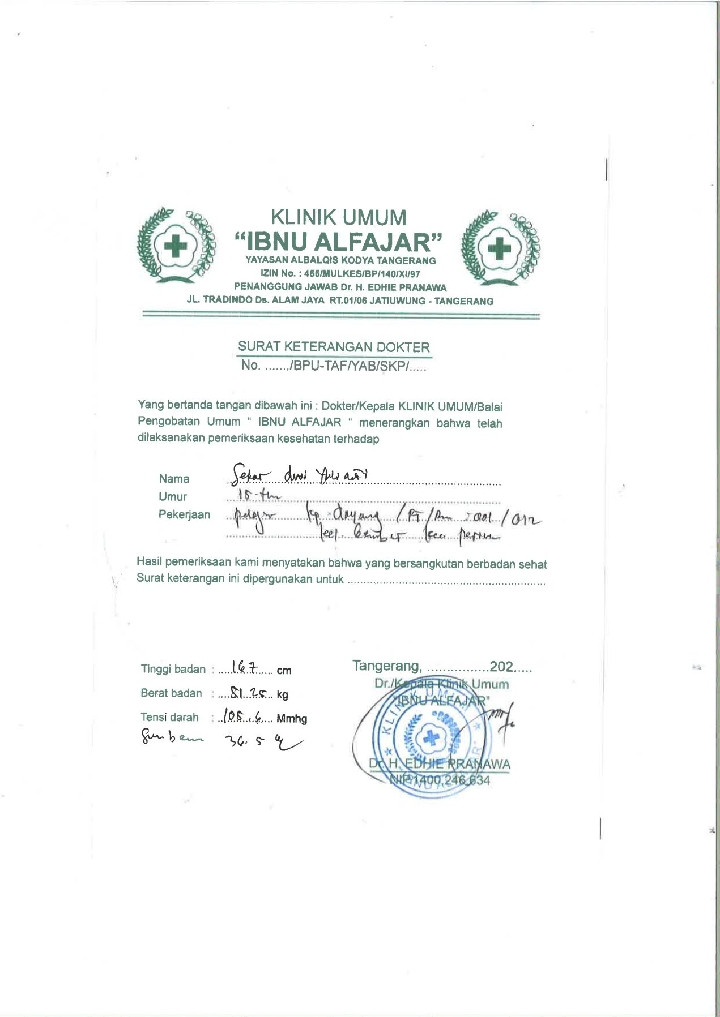 KLINIK UMUM
“IBNU ALFAJAR”
YAYASAN ALBALQIS KODYA TANGERANG
IZIN No. : 455/MULKES/BP/140/XI/97
PENANGGUNG JAWAB Dr. H. EDHIE PRANAWA
JL. TRADINDO Ds. ALAM JAYA RT.01/06 JATIUWUNG - TANGERANG
SURAT KETERANGAN DOKTER
No. ......./BPU-TAF/YAB/SKP/.....
Yang bertanda tangan dibawah ini : Dokter/Kepala KLINIK UMUM/Balai
Pengobatan Umum " IBNU ALFAJAR " menerangkan bahwa telah
dilaksanakan pemeriksaan kesehatan terhadap
Nama Sekar dewi
Umur
Pekerjaan pelajar kp. dayang
Hasil pemeriksaan kami menyatakan bahwa yang bersangkutan berbadan sehat
Surat keterangan ini dipergunakan untuk
Tinggi badan : 167 cm
Berat badan : kg
Tensi darah : Mmhg
36.5
Tangerang, ................202.....
Dr./Kepala Klinik Umum
"IBNU ALFAJAR"
KLINIK UMUM
IBNU ALFAJAR
Dr. H. EDHIE PRANAWA
NIP.1400.246.634